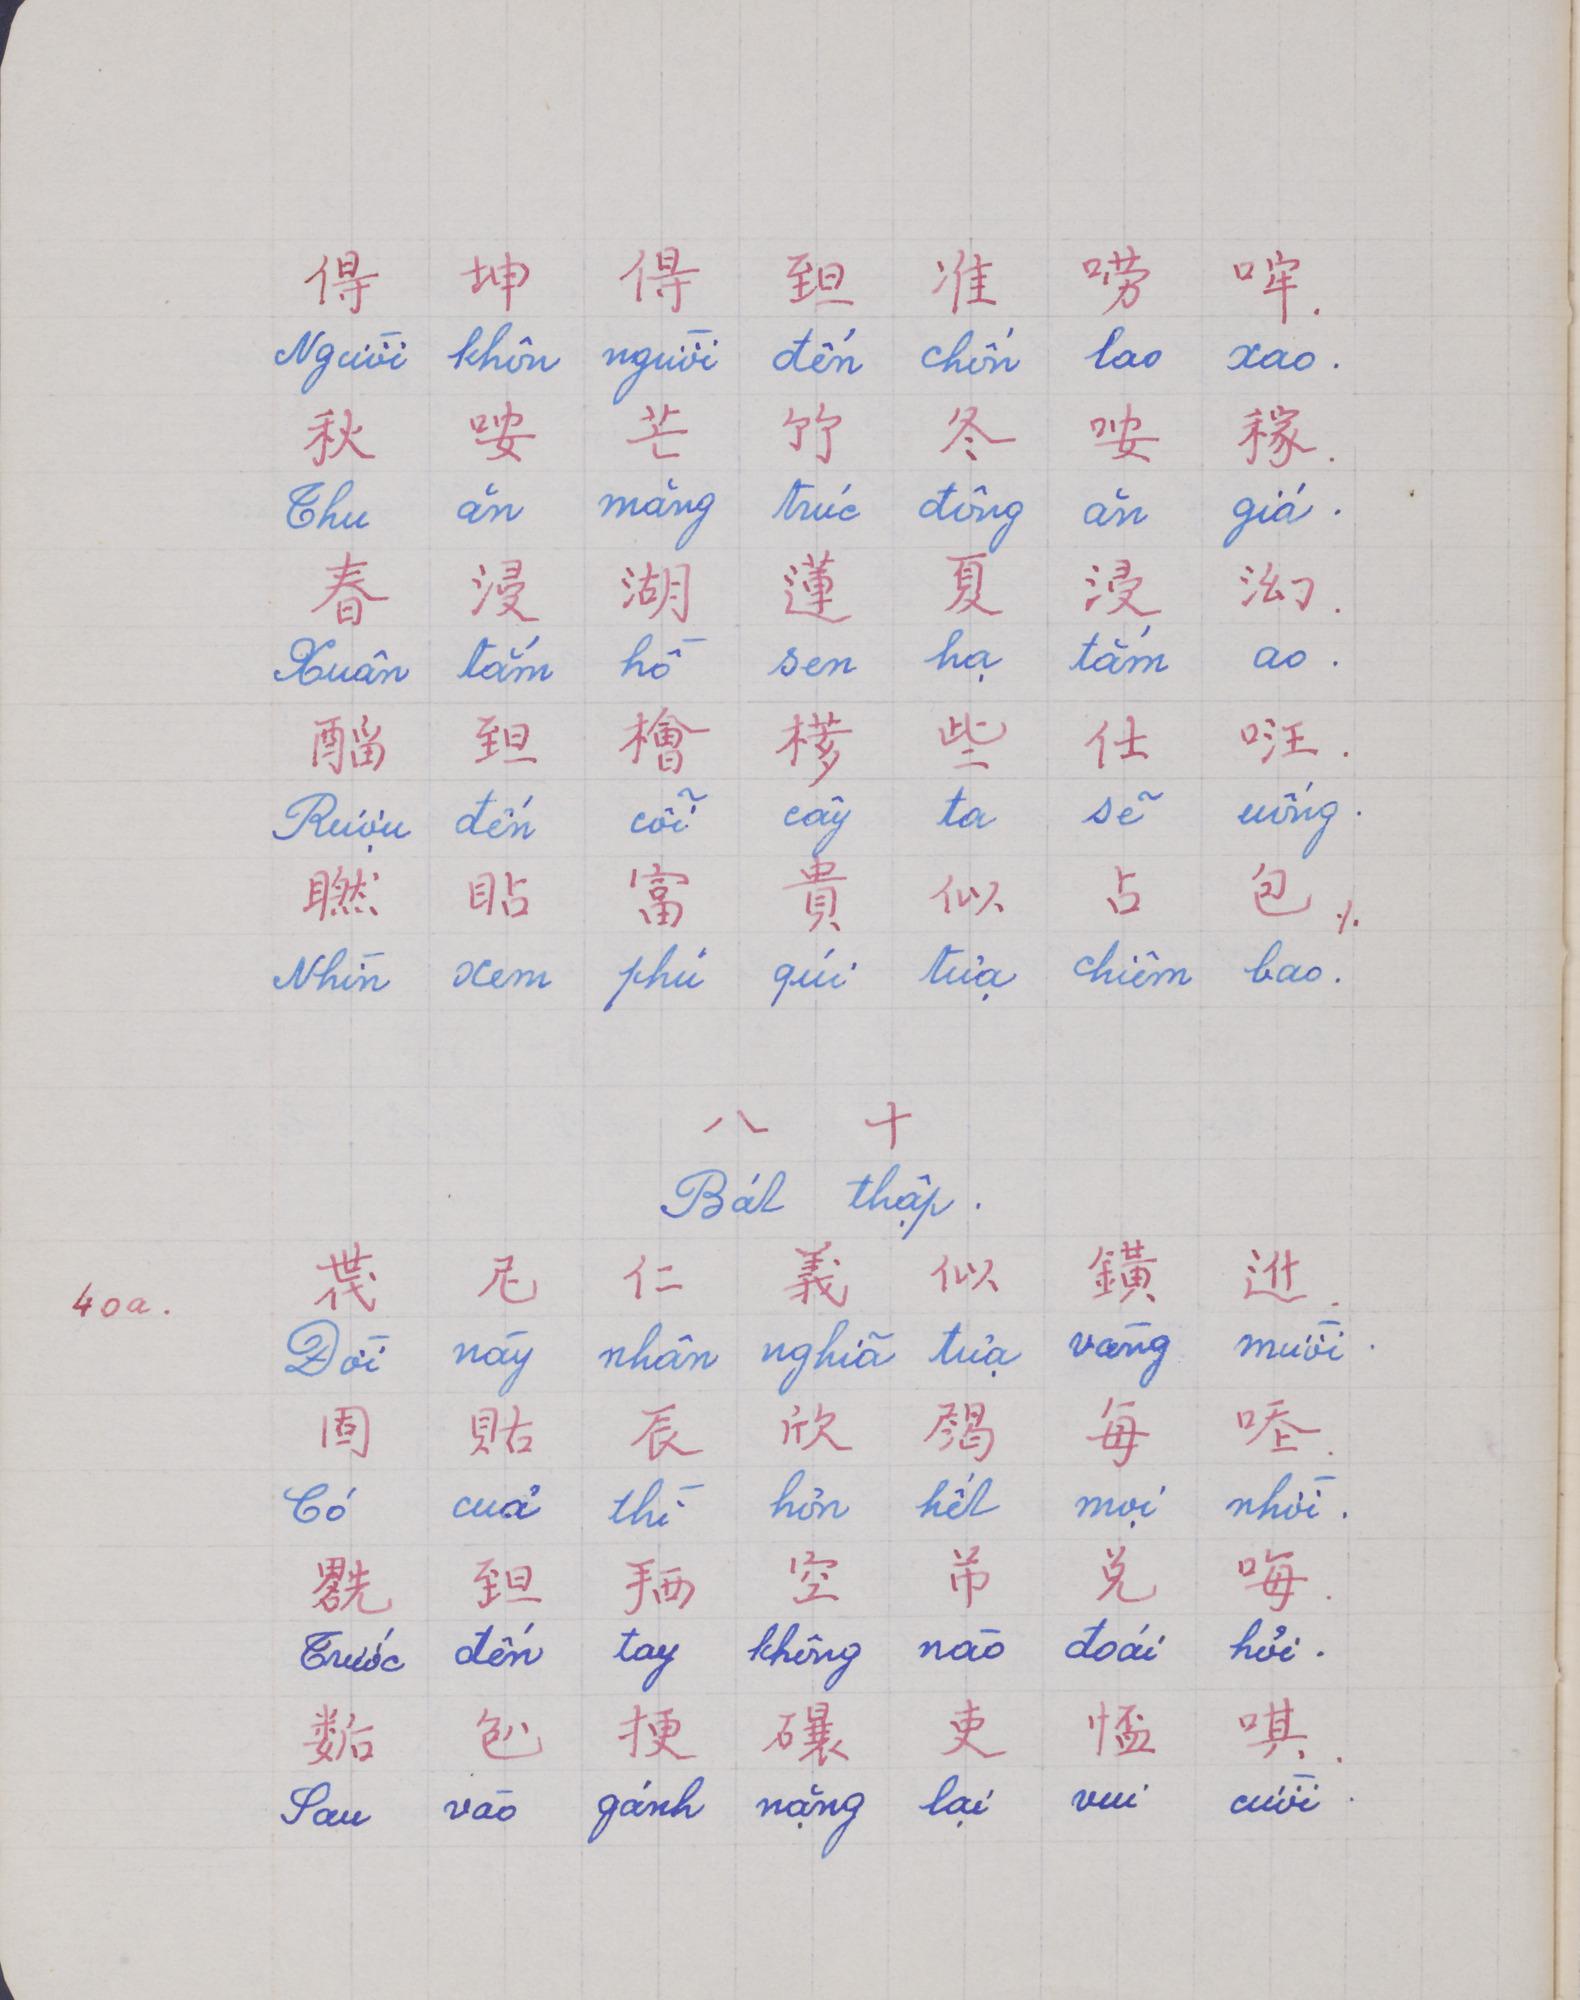 得 坤 得 𦤾 准 唠 哰.
Người khôn người đến chốn lao xao.
秋 咹 芒 竹 冬 咹 稼.
Thu ăn măng trúc đông ăn giá.
春 浸 湖 蓮 夏 浸 泑.
Xuân tắm hồ sen hạ tắm ao.
𨢇 𦤾 檜 𣘃 些 仕 㕵.
Rượu đến cỗi cây ta sẽ uống.
𥆾 䀡 富 貴 似 占 包 ٪
Nhìn xem phú quí tựa chiêm bao.
八 十
Bát thập.
40a.
𠁀 尼 仁 義 似 鐄 𨑮.
Đời này nhân nghĩa tựa vàng mười.
固 貼 辰 欣 歇 每 𠳒.
Có của thì hơn hết mọi nhời.
𠓀 𦤾 𢬣 空 芇 兑 晦.
Trước đến tay không nào đoái hỏi.
𢖖 𠓨 挭 𥗾 吏 𢝙 唭.
Sau vào gánh nặng lại vui cười.